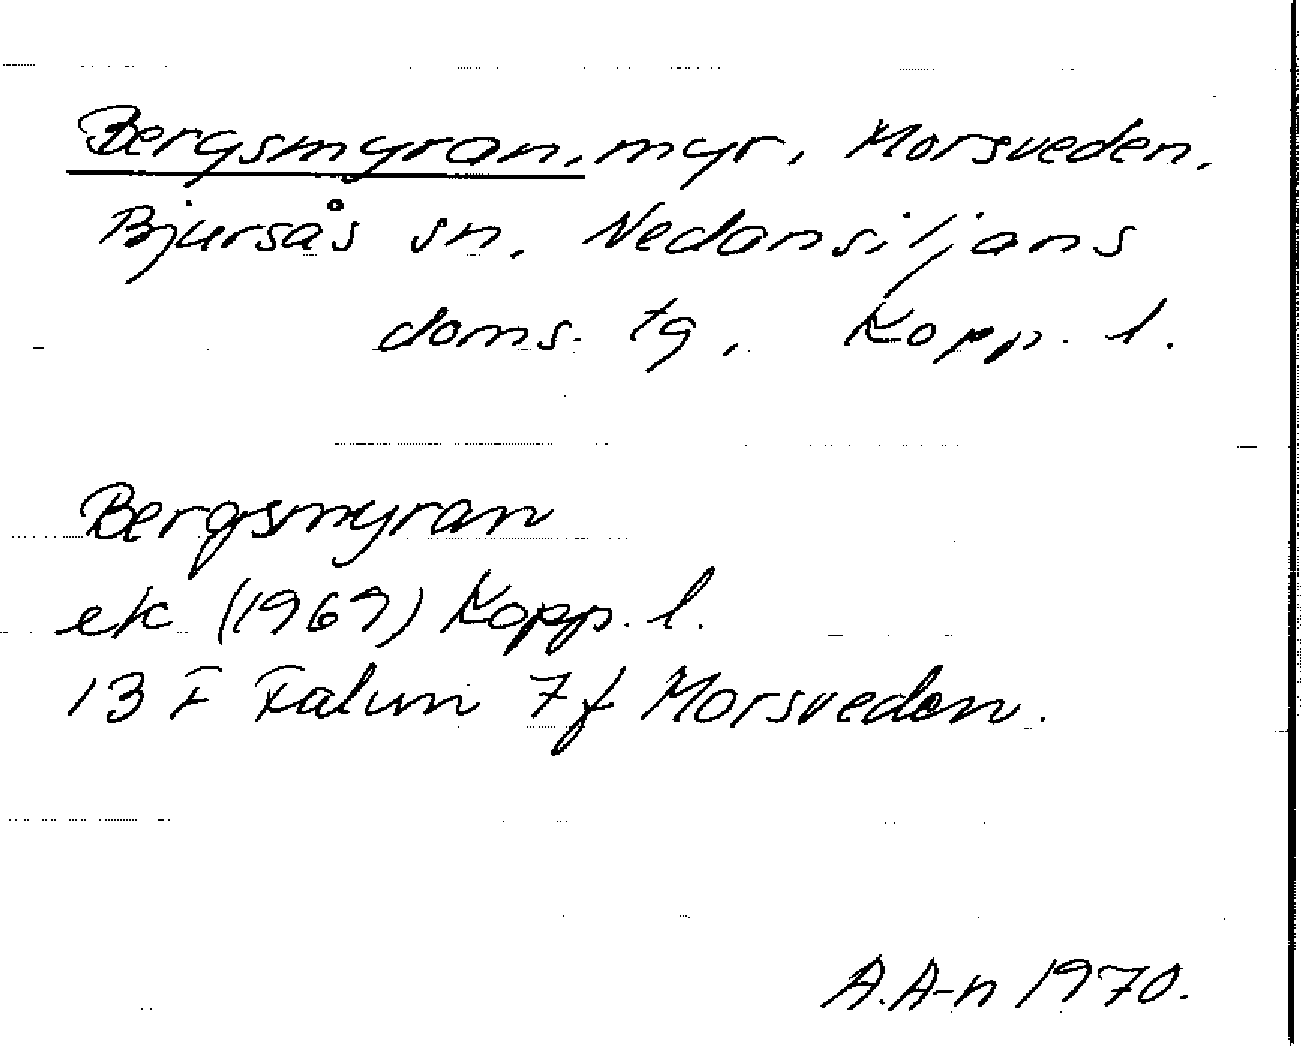 Bergsmyran, myr, Morsveden,
Bjursås sn, Nedansiljans
doms. tg, Kopp. l.
Bergsmyran
ek (1969) Kopp. l.
13 F Falun 7 f Morsveden.
A.A-n 1970.